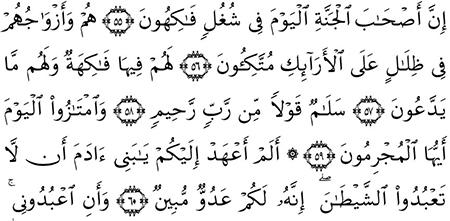 إِنَّ أَصْحَـٰبَ ٱلْجَنَّةِ ٱلْيَوْمَ فِى شُغُلٍ فَـٰكِهُونَ ﴿٥٥﴾ هُمْ وَأَزْوَٰجُهُمْ
فِى ظِلَـٰلٍ عَلَى ٱلْأَرَآئِكِ مُتَّكِـُٔونَ ﴿٥٦﴾ لَهُمْ فِيهَا فَـٰكِهَةٌ وَلَهُم مَّا
يَدَّعُونَ ﴿٥٧﴾ سَلَـٰمٌ قَوْلًا مِّن رَّبٍّ رَّحِيمٍ ﴿٥٨﴾ وَٱمْتَـٰزُوا۟ ٱلْيَوْمَ
أَيُّهَا ٱلْمُجْرِمُونَ ﴿٥٩﴾ ۞ أَلَمْ أَعْهَدْ إِلَيْكُمْ يَـٰبَنِىٓ ءَادَمَ أَن لَّا
تَعْبُدُوا۟ ٱلشَّيْطَـٰنَ ۖ إِنَّهُۥ لَكُمْ عَدُوٌّ مُّبِينٌ ﴿٦٠﴾ وَأَنِ ٱعْبُدُونِى ۚ